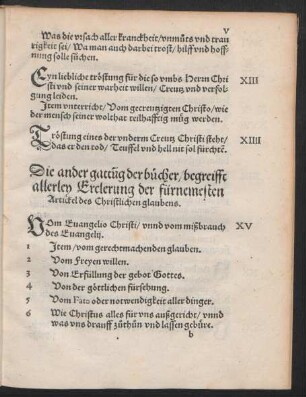 v
Was die vrsach aller kranckheit/ vnmůts vnd trau
rigkeit sei/ Wa man auch darbei trost/ hilff vnd hoff
nung solle sůchen.
Eyn liebliche tröstung für die so vmbs Herrn Chri XIII
sti vnd seiner warheit willen/ Creutz vnd verfol-
gung leiden.
Item vnterricht/ Vom gecreutzigten Christo/ wie
der mensch seiner wolthat teilhafftig müg werden.
Tröstung eines der vnderm Creutz Christi steht/ XIIII
das er den tod/ Teuffel vnd hell nit sol fürchtē.
Die ander gattūg der bücher/ begreifft
allerley Erclerung der fürnemesten
Artickel des Christlichen glaubens.
VOm Euangelio Christi/ vnnd vom mißbrauch XV
des Euangelij.
1 Item/ vom gerechtmachenden glauben.
2 Vom Freyen willen.
3 Von Erfüllung der gebot Gottes.
4 Von der göttlichen fürsehung.
5 Vom Fato oder notwendigkeit aller dinger.
6 Wie Christus alles für vns außgericht/ vnnd
was vns drauff zůthůn vnd lassen gebüre.
b